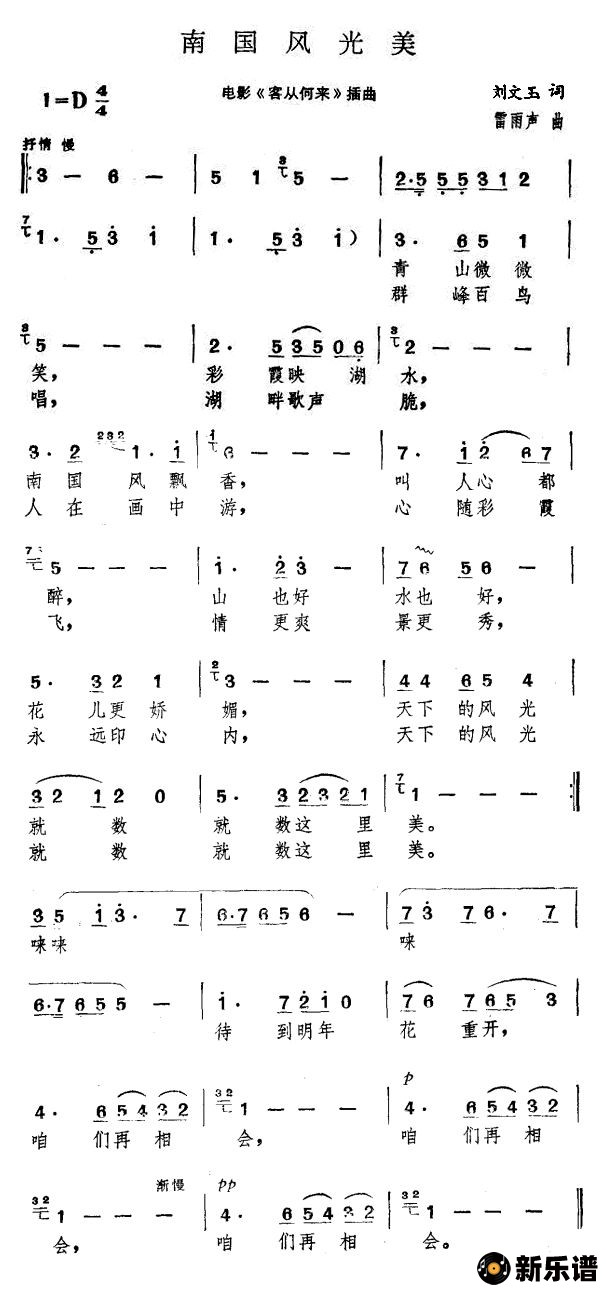 南国风光美
1=D 4/4
电影《客从何来》插曲
刘文玉 词
雷雨声 曲
抒情 慢
3 — 6 — | 5 1 5 — | 2·5 5 5 3 1 2 |
1· 5 3 i | 1· 5 3 i ) | 3· 6 5 1 |
青 山微 微
群 峰百 鸟
5 — — — | 2· 5 3 5 0 6 | 2 — — — |
笑， 彩 霞映 湖 水，
唱， 湖 畔歌 声 脆，
3· 2 1· 1 | 6 — — — | 7· i 2 6 7 |
南 国 风 飘 香， 叫 人心 都
人 在 画 中 游， 心 随彩 霞
5 — — — | i· 2 3 — | 7 6 5 6 — |
醉， 山 也好 水也 好，
飞， 情 更爽 景更 秀，
5· 3 2 1 | 3 — — — | 4 4 6 5 4 |
花 儿更 娇 媚， 天下 的风 光
永 远印 心 内， 天下 的风 光
3 2 1 2 0 | 5· 3 2 3 2 1 | 1 — — — :||
就 数 就 数这 里 美。
就 数 就 数这 里 美。
3 5 i 3· 7 | 6·7 6 5 6 — | 7 3 7 6· 7 |
唻唻 唻
6·7 6 5 5 — | i· 7 2 i 0 | 7 6 7 6 5 3 |
待 到明年 花 重开，
p
4· 6 5 4 3 2 | 1 — — — | 4· 6 5 4 3 2 |
咱 们再 相 会， 咱 们再 相
渐慢 pp
1 — — — | 4· 6 5 4 3 2 | 1 — — — ||
会， 咱 们再 相 会。
新乐谱